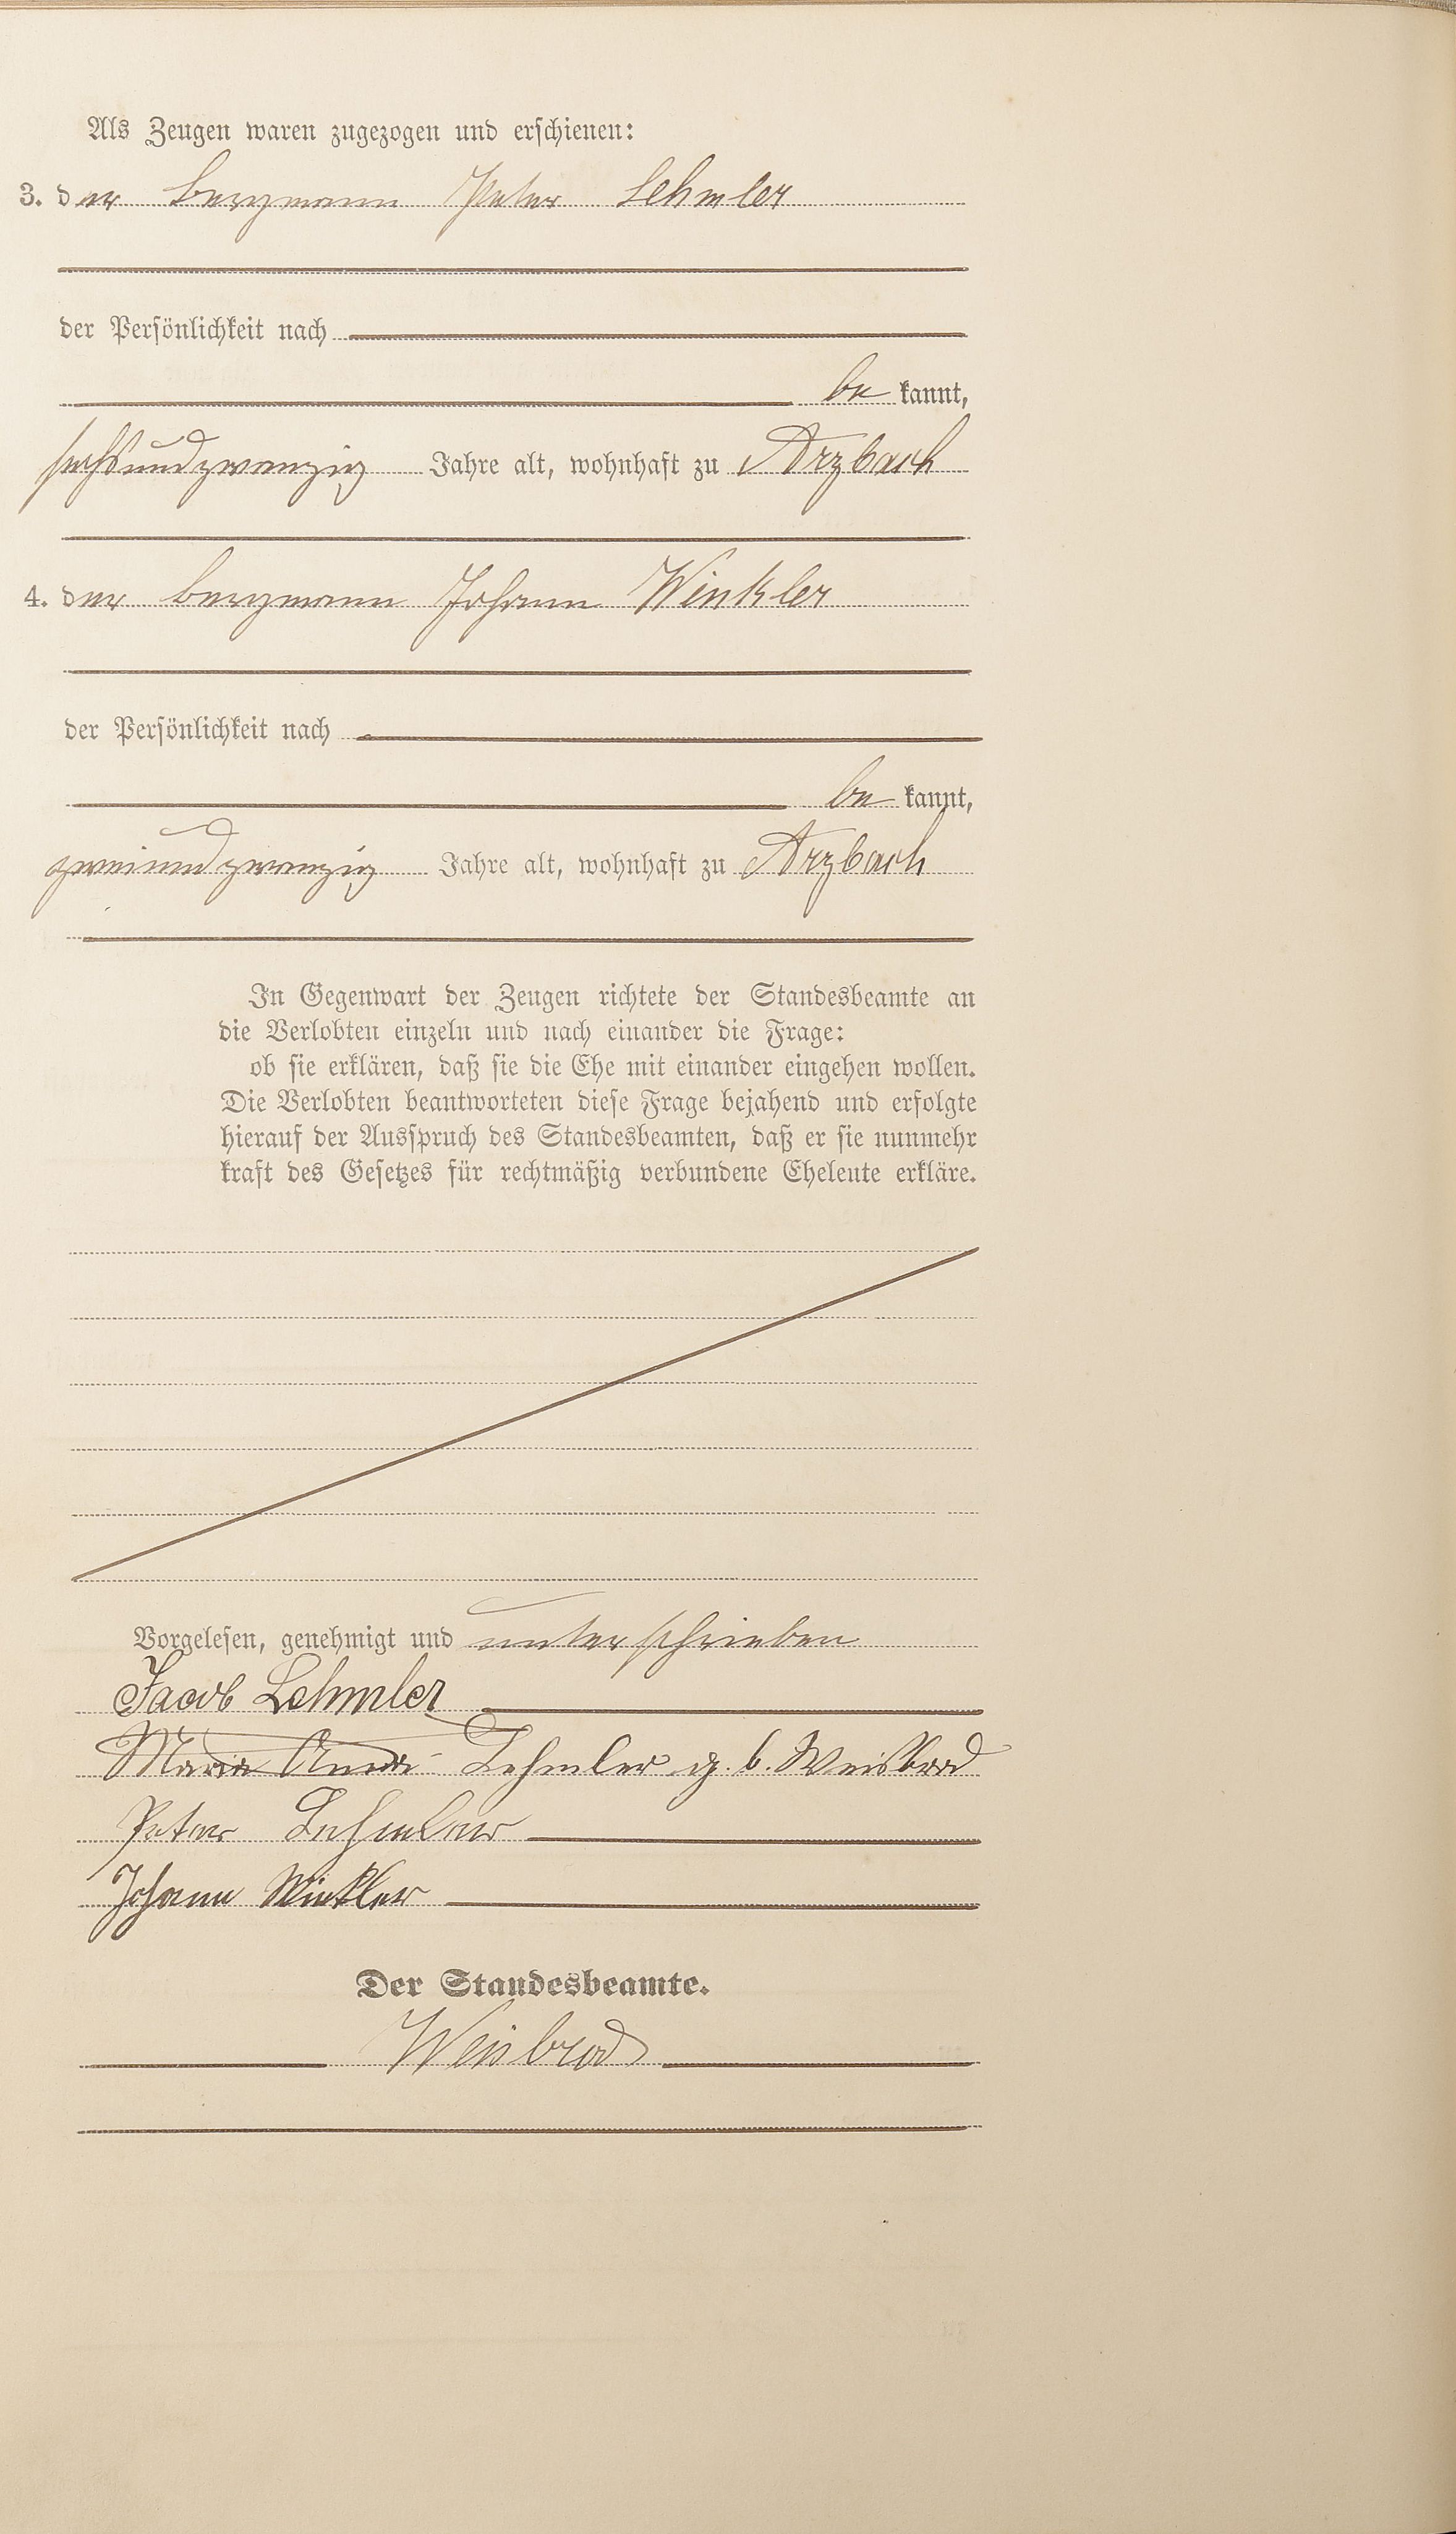 Als Zeugen waren zugezogen und erschienen:
3. der Bergmann Peter Lehmler
der Persönlichkeit nach
bekannt,
sechsundzwanzig Jahre alt, wohnhaft zu Arzbach
4. der Bergmann Johann Winkler
der Persönlichkeit nach
bekannt,
zweiundzwanzig Jahre alt, wohnhaft zu Arzbach
In Gegenwart der Zeugen richtete der Standesbeamte an
die Verlobten einzeln und nach einander die Frage:
ob sie erklären, daß sie die Ehe mit einander eingehen wollen.
Die Verlobten beantworteten diese Frage bejahend und erfolgte
hierauf der Ausspruch des Standesbeamten, daß er sie nunmehr
kraft des Gesetzes für rechtmäßig verbundene Eheleute erkläre.
Vorgelesen, genehmigt und unterschrieben
Jacob Lehmler
Maria Anna Lehmler g. b. Weisbrod
Peter Lehmler
Johann Winkler
Der Standesbeamte.
Weisbrod